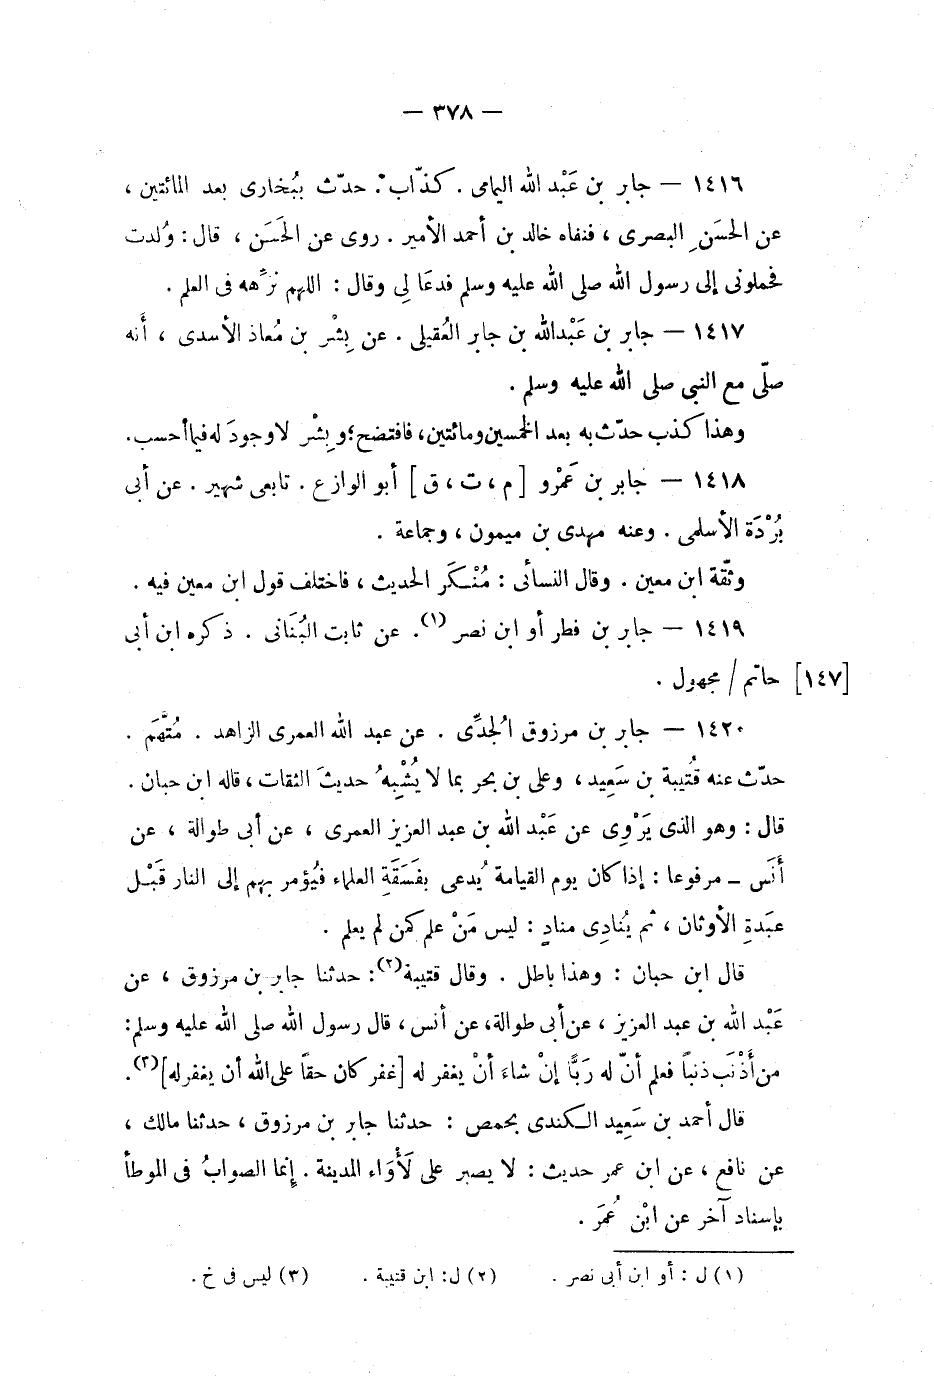 — ٣٧٨ —
١٤١٦ — جابر بن عَبْد الله اليمامى . كذّاب . حدّث ببُخارى بعد المائتين ،
عن الحسَنِ البصرى ، فنفاه خالد بن أحمد الأمير . روى عن الحَسَن ، قال : وُلدت
فحملونى إلى رسول الله صلى الله عليه وسلم فدعَا لِى وقال : اللهم نزِّهه فى العلم .
١٤١٧ — جابر بن عَبْدالله بن جابر العُقيلى . عن بِشْر بن مُعاذ الأسدى ، أَنه
صلّى مع النبى صلى الله عليه وسلم .
وهذا كذب حدّث به بعد الخمسين ومائتين، فافتضح؛ وبِشْر لا وجودَ له فيما أحسب.
١٤١٨ — جابر بن عَمْرو [ م ، ت ، ق ] أبو الوازع . تابعى شهير . عن أبى
بُرْدَة الأسلمى . وعنه مهدى بن ميمون ، وجماعة .
وثّقة ابن معين . وقال النسائى : مُنْكَر الحديث ، فاختلف قول ابن معين فيه .
١٤١٩ — جابر بن فطر أو ابن نصر (١). عن ثابت البُنَانى . ذكره ابن أبى
[١٤٧] حاتم / مجهول .
١٤٢٠ — جابر بن مرزوق الجُدِّى . عن عبد الله العمرى الزاهد . مُتَّهَم .
حدّث عنه قُتيبة بن سَعِيد ، وعلى بن بحر بما لا يُشْبِهُ حديثَ الثقات ، قاله ابن حبان .
قال : وهو الذى يَرْوِى عن عَبْد الله بن عبد العزيز العمرى ، عن أبى طوالة ، عن
أَنَس – مرفوعا : إذا كان يوم القيامة يُدعى بفَسَقَةِ العلماء فيُؤمر بهم إلى النار قَبْل
عبَدةِ الأوثان ، ثم يُنادِى منادٍ : ليس مَنْ علم كمن لم يعلم .
قال ابن حبان : وهذا باطل . وقال قتيبة(٢): حدثنا جابر بن مرزوق ، عن
عَبْد الله بن عبد العزيز ، عن أبى طوالة، عن أنس ، قال رسول الله صلى الله عليه وسلم:
من أَذْنَب ذنباً فعلم أنّ له رَبًّا إنْ شاءَ أنْ يغفر له [غفر كان حقاً على الله أن يغفر له](٣).
قال أحمد بن سَعِيد الكندى بحمص : حدثنا جابر بن مرزوق ، حدثنا مالك ،
عن نافع ، عن ابن عمر حديث : لا يصبر على لَأْوَاء المدينة . إنما الصوابُ فى الموطأ
بإسناد آخر عن ابْن عُمَر .
(١) ل : أو ابن أبى نصر . (٢) ل: ابن قتيبة . (٣) ليس فى خ .